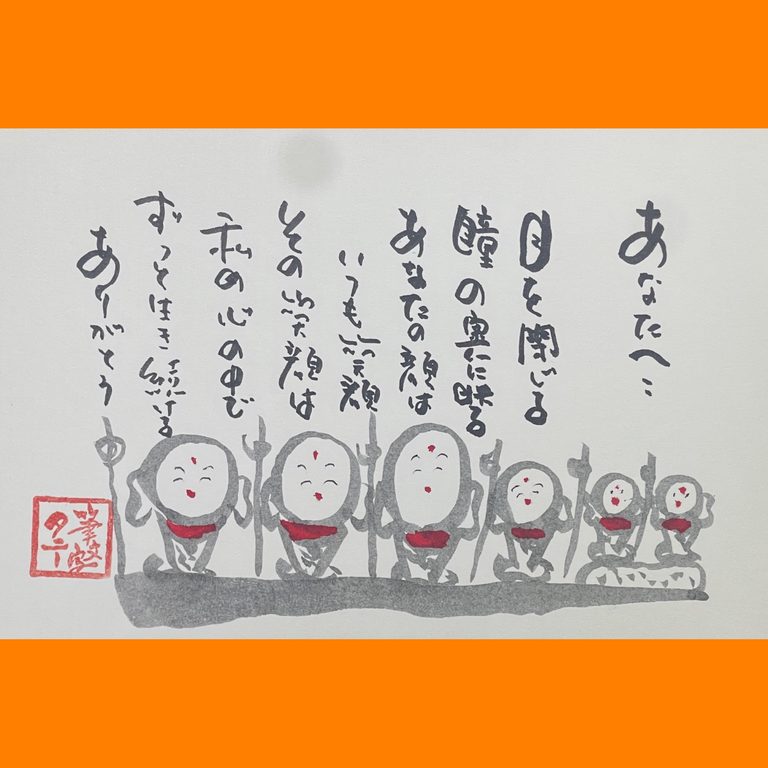 あなたへ…
目を閉じる
瞳の奥に映る
あなたの顔は
いつも笑顔
その笑顔は
私の心の中で
ずっと生き続ける
ありがとう
筆文字
タニー